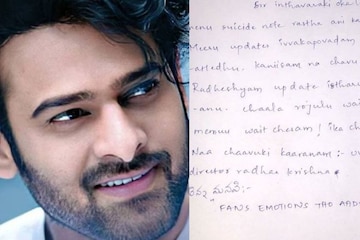 Sir inthavaraki chal
memu suicide note rastha ani
Meeru updates ivvakapovadam
-artledhu. kanisam no chavu
Radheshyam update istharu
-anu. chaala rojulu wa
memu wait chesam! ika ch
Naa chaavuki kaaranam :-
director radha krishna
FANS EMOTIONS THO AADU